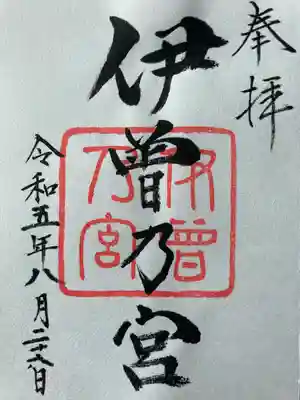 奉拝
伊曽乃宮
伊曽乃宮
令和五年八月二十六日